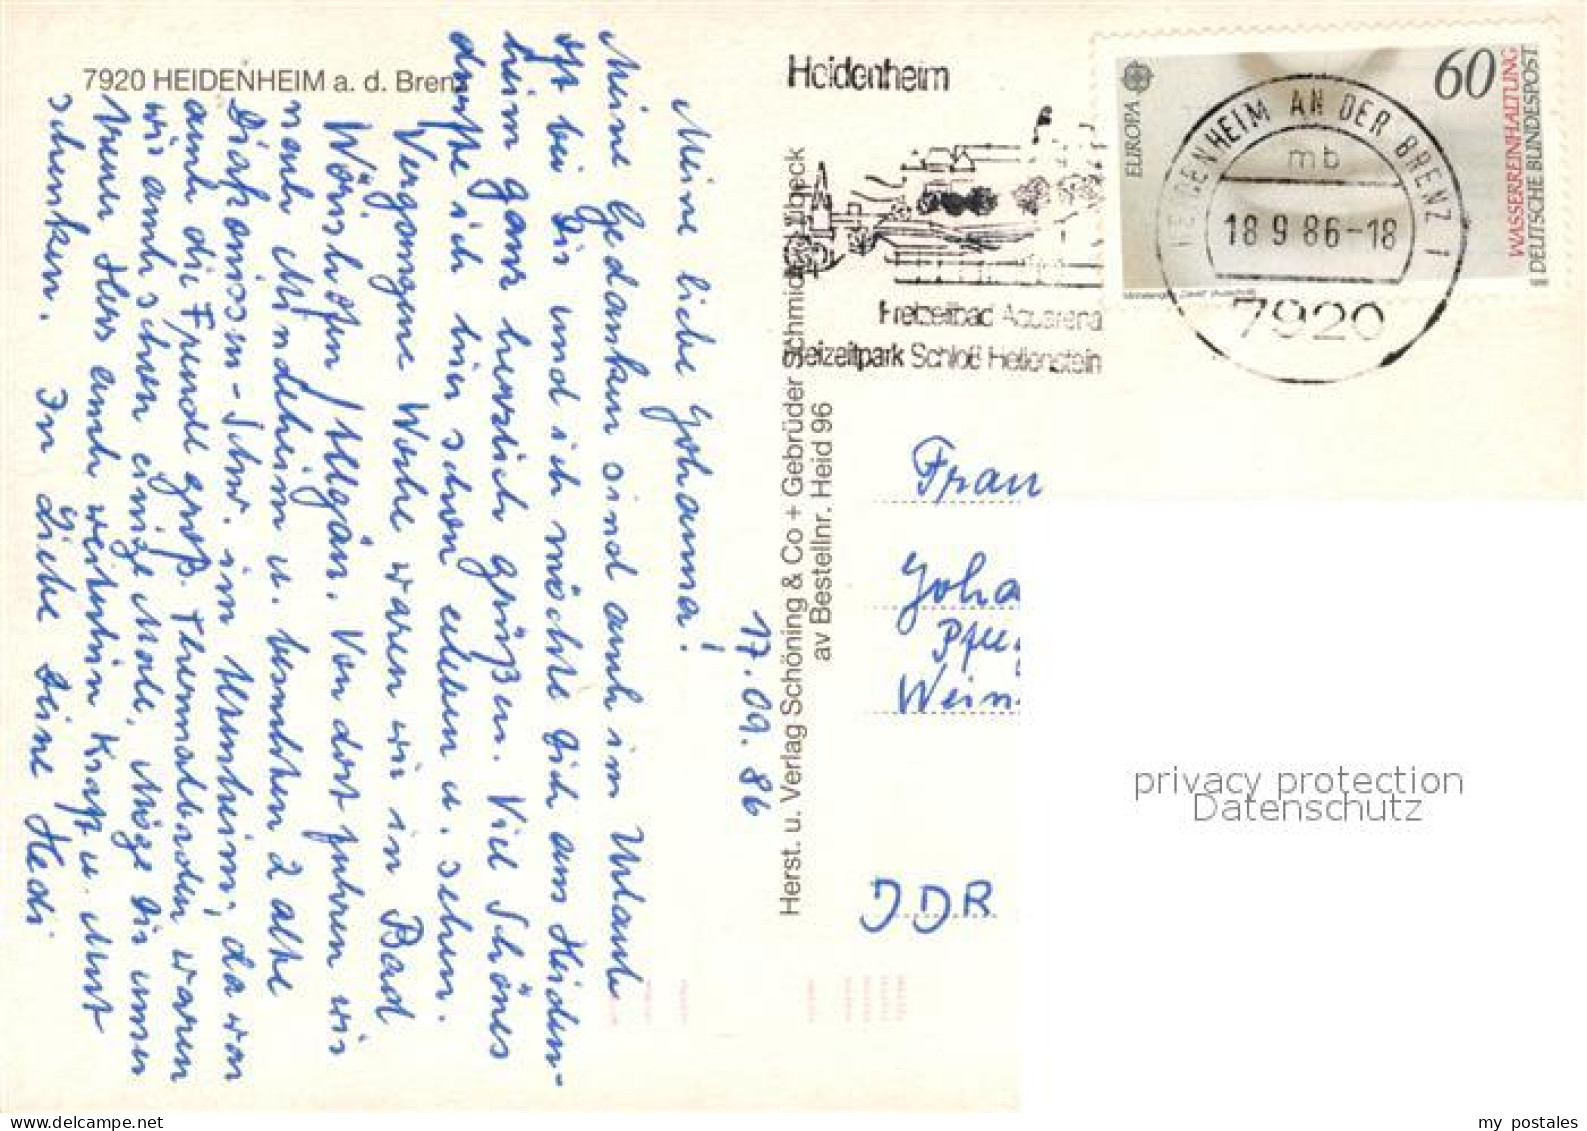 7920 HEIDENHEIM a. d. Brenz
17.09.86
Meine liebe Johanna!
Meine Gedanken sind auch im Urlaub
oft bei Dir und ich möchte Dich aus Heiden-
heim ganz herzlich grüßen. Viel Schönes
durfte ich hier schon erleben u. sehen.
Vergangene Woche waren wir in Bad
Wörishofen / Allgäu. Von dort fuhren wir
nach Mindelheim u. besuchten 2 alte
Diakonissen-Schw. im
auch die Freude groß. Thermalbaden waren
wir auch schon einige Male. Möge Dir unser
treuer Herr auch weiterhin Kraft u. Mut
schenken. In Liebe Deine Hedi
Herst. u. Verlag Schöning & Co + Gebrüder Schmidt, Lübeck
av Bestellnr. Heid 96
Heidenheim
Freizeitbad Aquarena
Freizeitpark Schloß Hellenstein
EUROPA
60
WASSERREINHALTUNG
DEUTSCHE BUNDESPOST
HEIDENHEIM AN DER BRENZ 1
mb
18 9 86-18
7920
Frau
Joha
Pfleg
Wein
DDR
privacy protection
Datenschutz
my postales